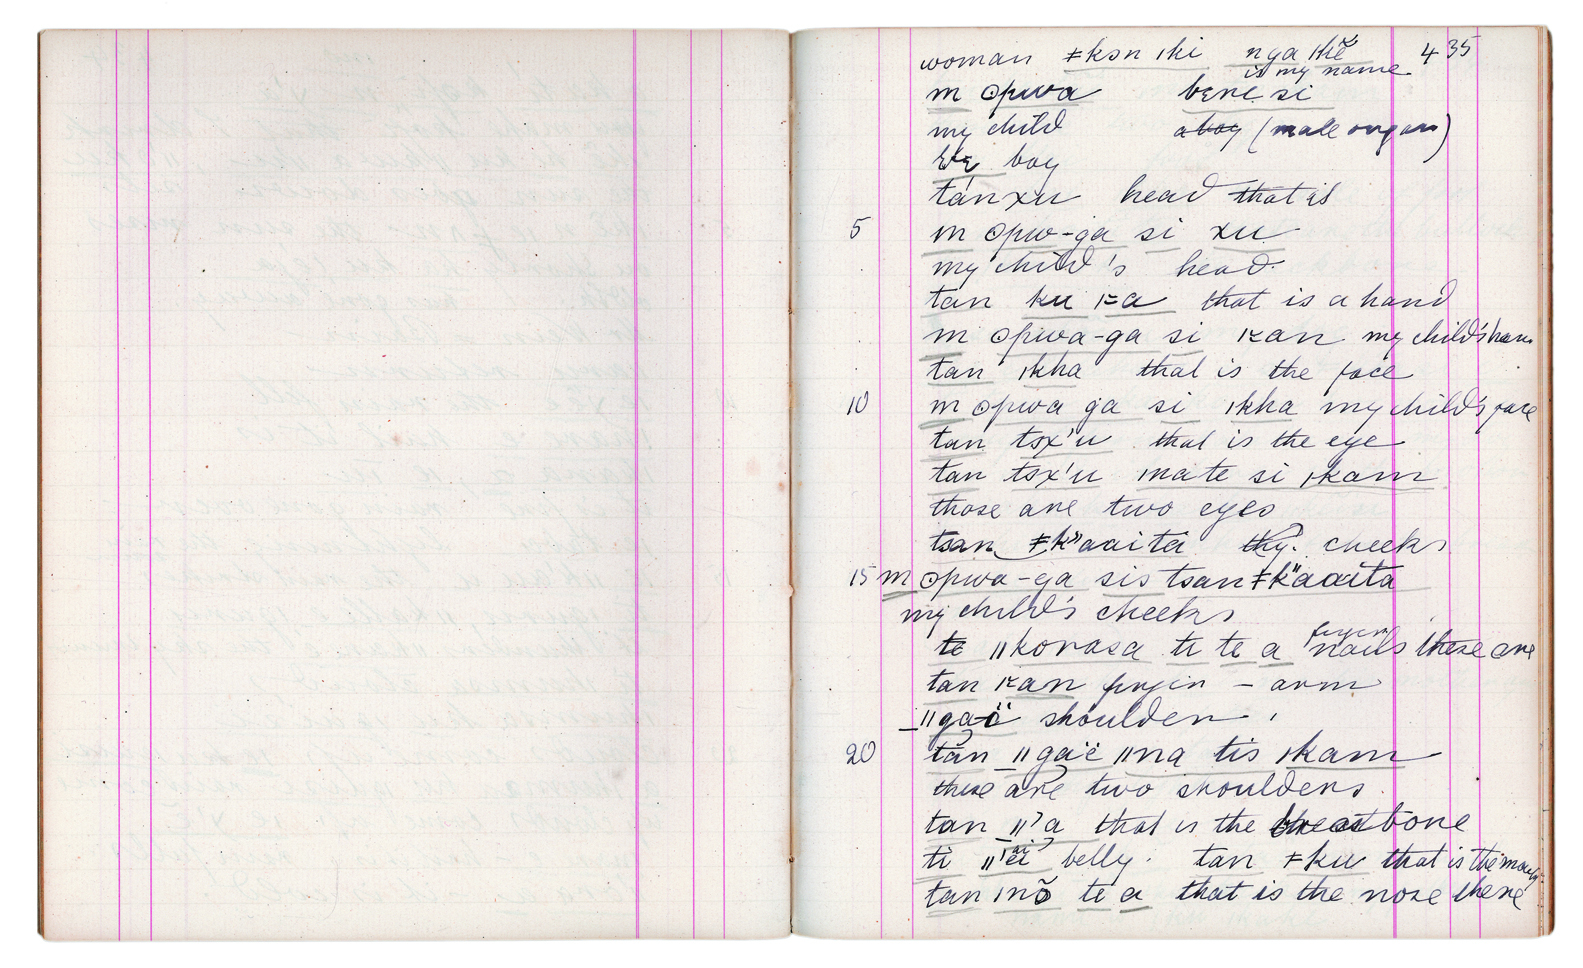 woman ǂkɔn ıki nga ıkĕ 435
is my name
m ʘpwa bɛnɛ si
my child a boy (male organ)
boy
tánxu head that is
5 m ʘpw-ga si xu
my child's head.
tan ku ʞa that is a hand
m ʘpwa-ga si ʞan my child's han
tan ıkha that is the face
10 m ʘpwa ga si ıkha my child's face
tan tsx'u that is the eye
tan tsx'u ınate si ıkam
those are two eyes
tsan ǂk"aaita thy. cheeks
15 m ʘpwa-ga sis tsan ǂk"aaita
my child's cheeks
te ǁkorasa te te a finger nails these are
tan ʞan - arm
ǁgaë shoulder
20 tan ǁgaë ǁna tis ıkam
these are two shoulders
tan ǁ'a that is the breastbone
ti belly. tan ǂku that is the mouth
tan ınŏ te a that is the nose there